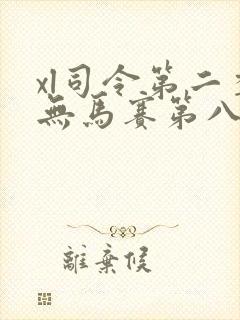 xl司令第二
無馬賽第八
離棄候